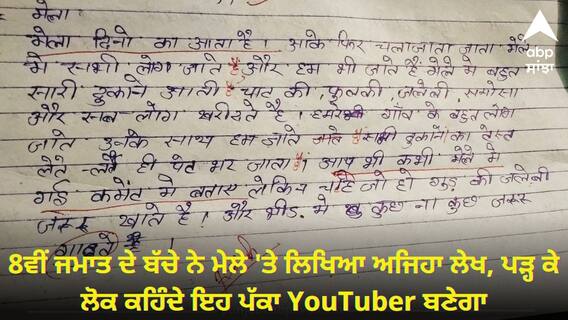 मेला
मेला दिनो का आता है। आके फिर चला जाता जाता मेले
मे सभी लोग जाते है और हम भी जाते है मेले मे बहुत
सारी दुकाने आती है चाट की, फुलकी, जलेबी, समोसा
और सब लोग खरीदते है। हमारे गाँव के बहुत लोग
जाते उनके साथ हम जाते जाते है सभी दुकानों का टेस्ट
लेते लेते ही पेट भर जाता है। आप भी कभी मेले मे
गई कमेंट मे बताए लेकिन चाहे जो हो गुड़ की जलेबी
जरूर खाते है। और भीड़ मे कुछ ना कुछ जरूर
गावते है।
abp
ਸਾਂਝਾ
8ਵੀਂ ਜਮਾਤ ਦੇ ਬੱਚੇ ਨੇ ਮੇਲੇ 'ਤੇ ਲਿਖਿਆ ਅਜਿਹਾ ਲੇਖ, ਪੜ੍ਹ ਕੇ
ਲੋਕ ਕਹਿੰਦੇ ਇਹ ਪੱਕਾ YouTuber ਬਣੇਗਾ